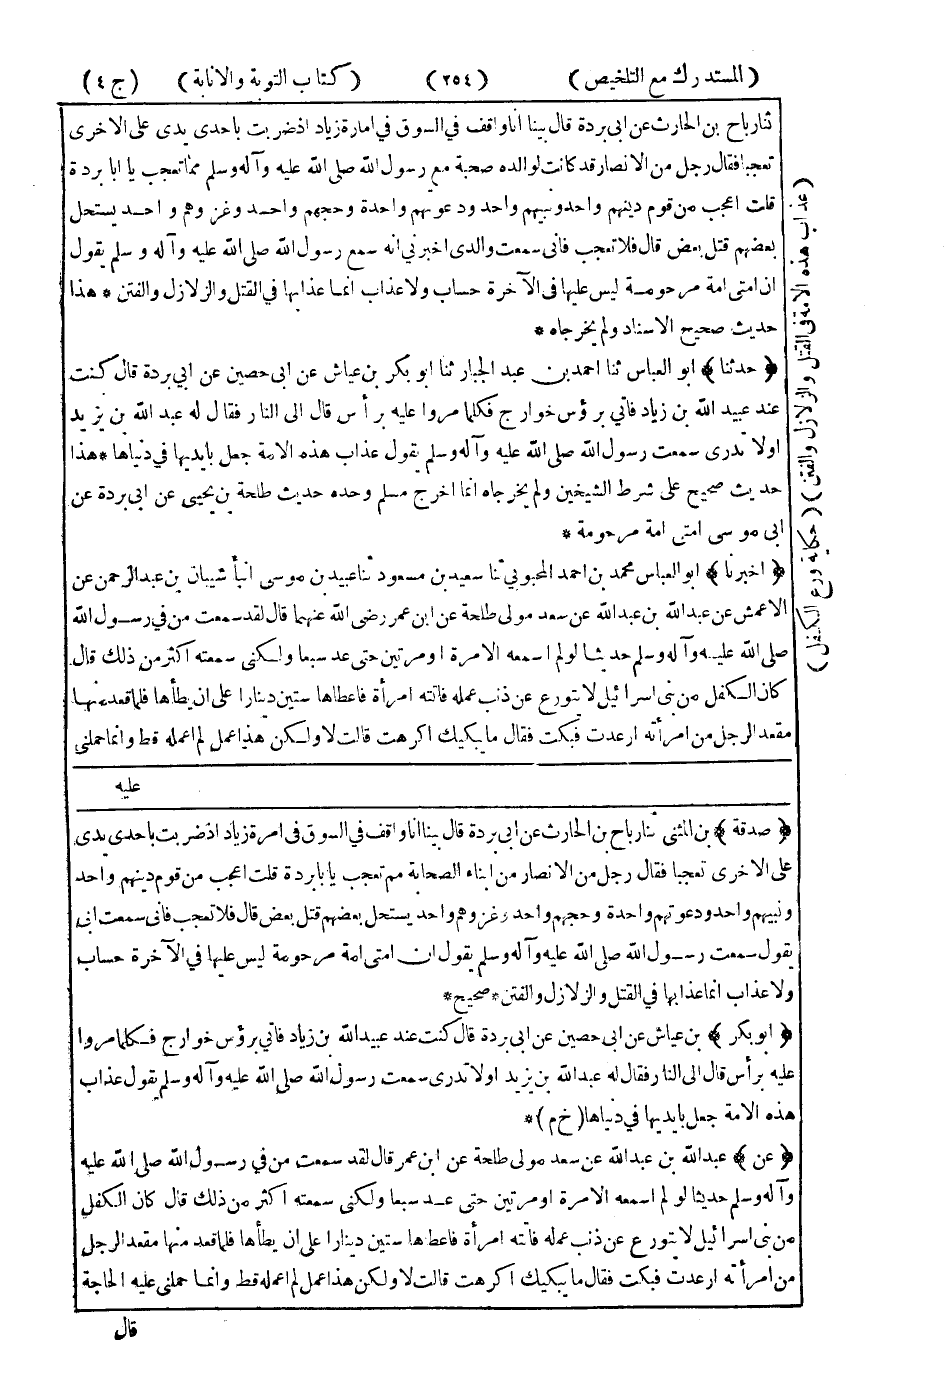 (المستدرك مع التلخيص) (٢٥٤) (كتاب التوبة والانابة) (ج ٤)
ثنا رباح بن الحارث عن ابى بردة قال بينا انا واقف في السوق في امارة زياد اذ ضربت باحدى يدى على الاخرى
تعجبا فقال رجل من الانصار قد كانت لوالده صحبة مع رسول الله صلى الله عليه وآله وسلم مما تعجب يا ابا بردة
قلت اعجب من قوم دينهم واحد ونبيهم واحد ودعوتهم واحدة وحجهم واحد وغزوهم واحد يستحل
بعضهم قتل بعض قال فلا تعجب فانى سمعت والدى اخبرني انه سمع رسول الله صلى الله عليه وآله وسلم يقول
ان امتى امة مرحومة ليس عليها في الآخرة حساب ولا عذاب انما عذابها في القتل والزلازل والفتن * هذا
حديث صحيح الاسناد ولم يخرجاه *
﴿ حدثنا ﴾ ابو العباس ثنا احمد بن عبد الجبار ثنا ابو بكر بن عياش عن ابى حصين عن ابي بردة قال كنت
عند عبيد الله بن زياد فاتي برؤس خوارج فكلما مروا عليه برأس قال الى النار فقال له عبد الله بن يزيد
اولا تدرى سمعت رسول الله صلى الله عليه وآله وسلم يقول عذاب هذه الامة جعل بايديها في دنياها * هذا
حديث صحيح على شرط الشيخين ولم يخرجاه انما اخرج مسلم وحده حديث طلحة بن يحيى عن ابى بردة عن
ابى موسى امتى امة مرحومة *
﴿ اخبرنا ﴾ ابو العباس محمد بن احمد المحبوبي ثنا سعيد بن مسعود ثنا عبيد بن موسى انبأ شيبان بن عبد الرحمن عن
الاعمش عن عبد الله بن عبد الله عن سعد مولى طلحة عن ابن عمر رضى الله عنهما قال لقد سمعت من في رسول الله
صلى الله عليه وآله وسلم حديثا لو لم اسمعه الا مرة او مرتين حتى عد سبعا ولكنى سمعته اكثر من ذلك قال
كان الكفل من بنى اسرائيل لا يتورع عن ذنب عمله فاتته امرأة فاعطاها ستين دينارا على ان يطأها فلما قعد منها
مقعد الرجل من امرأته ارعدت فبكت فقال ما يبكيك اكرهت قالت لا ولكن هذا عمل لم اعمله قط وانما حملنى
عليه
﴿ صدقة ﴾ بن المثنى ثنا رباح بن الحارث عن ابى بردة قال بينا انا واقف في السوق فى امرة زياد اذ ضربت باحدى يدى
على الاخرى تعجبا فقال رجل من الانصار من ابناء الصحابة مم تعجب يا با بردة قلت اعجب من قوم دينهم واحد
ونبيهم واحد ودعوتهم واحدة وحجهم واحد وغزوهم واحد يستحل بعضهم قتل بعض قال فلا تعجب فانى سمعت ابى
يقول سمعت رسول الله صلى الله عليه وآله وسلم يقول ان امتى امة مرحومة ليس عليها في الآخرة حساب
ولا عذاب انما عذابها في القتل والزلازل والفتن * صحيح *
﴿ ابو بكر ﴾ بن عياش عن ابى حصين عن ابى بردة قال كنت عند عبيد الله بن زياد فاتي برؤس خوارج فكلما مروا
عليه برأس قال الى النار فقال له عبد الله بن يزيد اولا تدرى سمعت رسول الله صلى الله عليه وآله وسلم يقول عذاب
هذه الامة جعل بايديها في دنياها (خ م) *
﴿ عن ﴾ عبد الله بن عبد الله عن سعد مولى طلحة عن ابن عمر قال لقد سمعت من في رسول الله صلى الله عليه
وآله وسلم حديثا لو لم اسمعه الا مرة او مرتين حتى عد سبعا ولكنى سمعته اكثر من ذلك قال كان الكفل
من بنى اسرائيل لا يتورع عن ذنب عمله فاتته امرأة فاعطاها ستين دينارا على ان يطأها فلما قعد منها مقعد الرجل
من امرأته ارعدت فبكت فقال ما يبكيك اكرهت قالت لا ولكن هذا عمل لم اعمله قط وانما حملنى عليه الحاجة
قال
(عذاب هذه الامة في القتل والزلازل والفتن) (حكاية ورع الكفل)